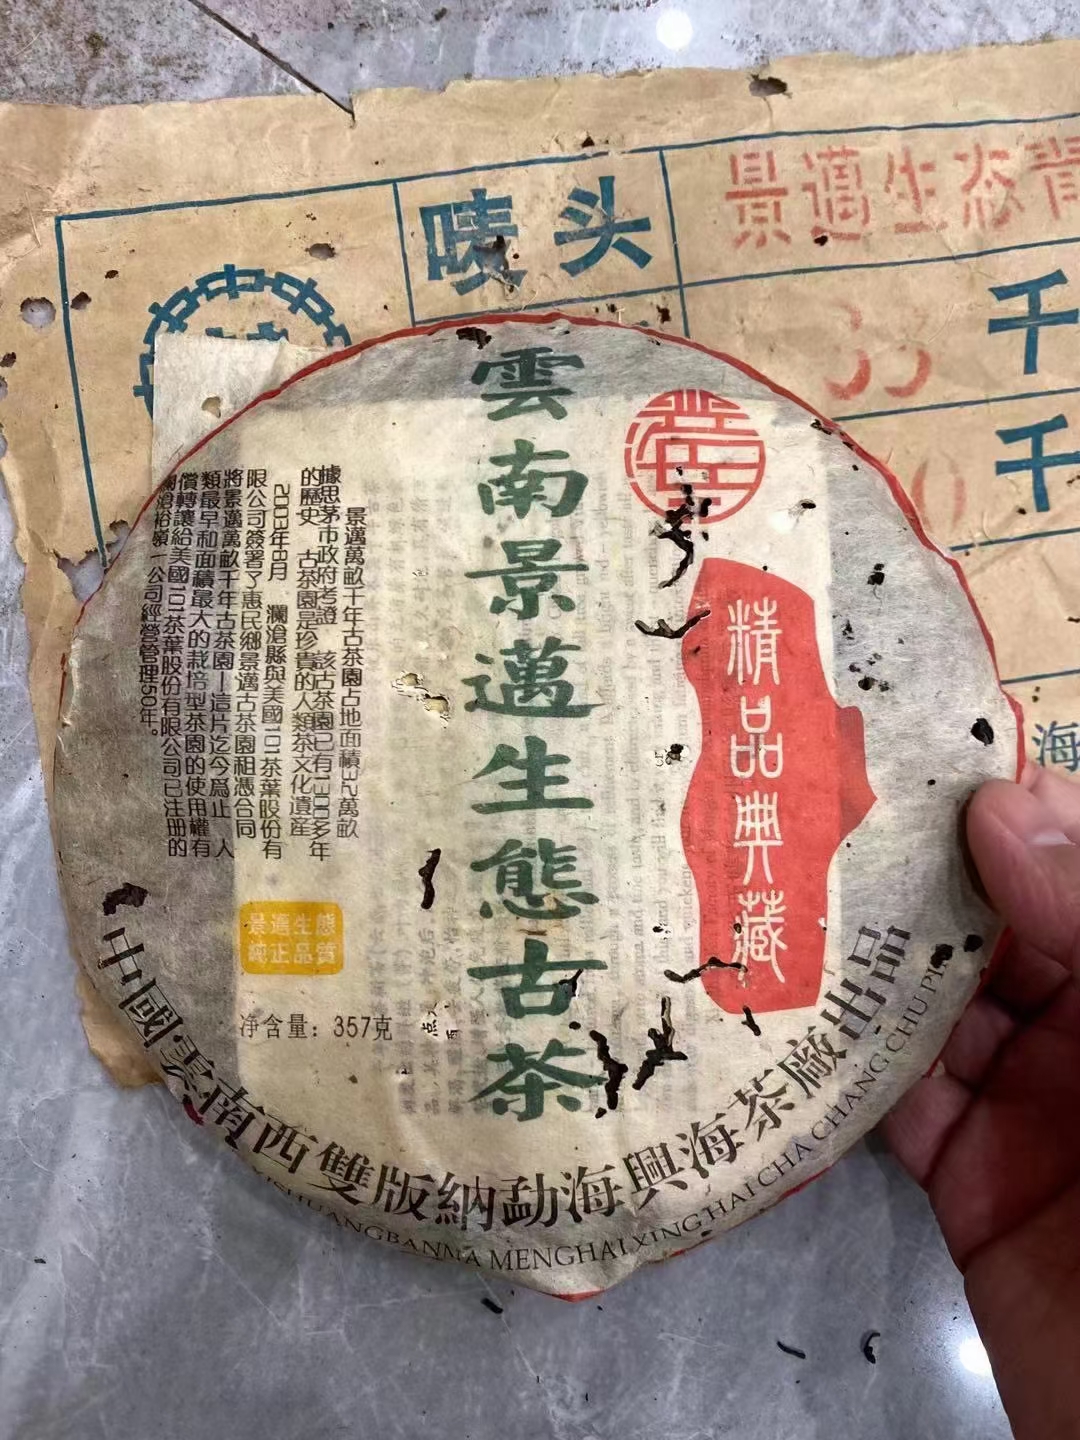 唛头
景邁生态青
33
千
千
海
雲南景邁生態古茶
精品典藏
景邁萬畝千年古茶園占地面積3.2萬畝
據思茅市政府考證 該古茶園已有1300多年
的歷史 古茶園是珍貴的人類茶文化遺産
2003年8月 瀾滄縣與美國101茶葉股份有
限公司簽署了惠民鄉景邁古茶園租憑合同
將景邁萬畝千年古茶園—這片迄今爲止 人
類最早和面積最大的栽培型茶園的使用權有
償轉讓給美國101茶葉股份有限公司已注册的
瀾滄裕嶺一公司經營管理50年。
景邁生態
純正品質
净含量：357克
中國雲南西雙版納勐海興海茶廠出品
XISHUANGBANNA MENGHAI XINGHAI CHA CHANG CHU PIN